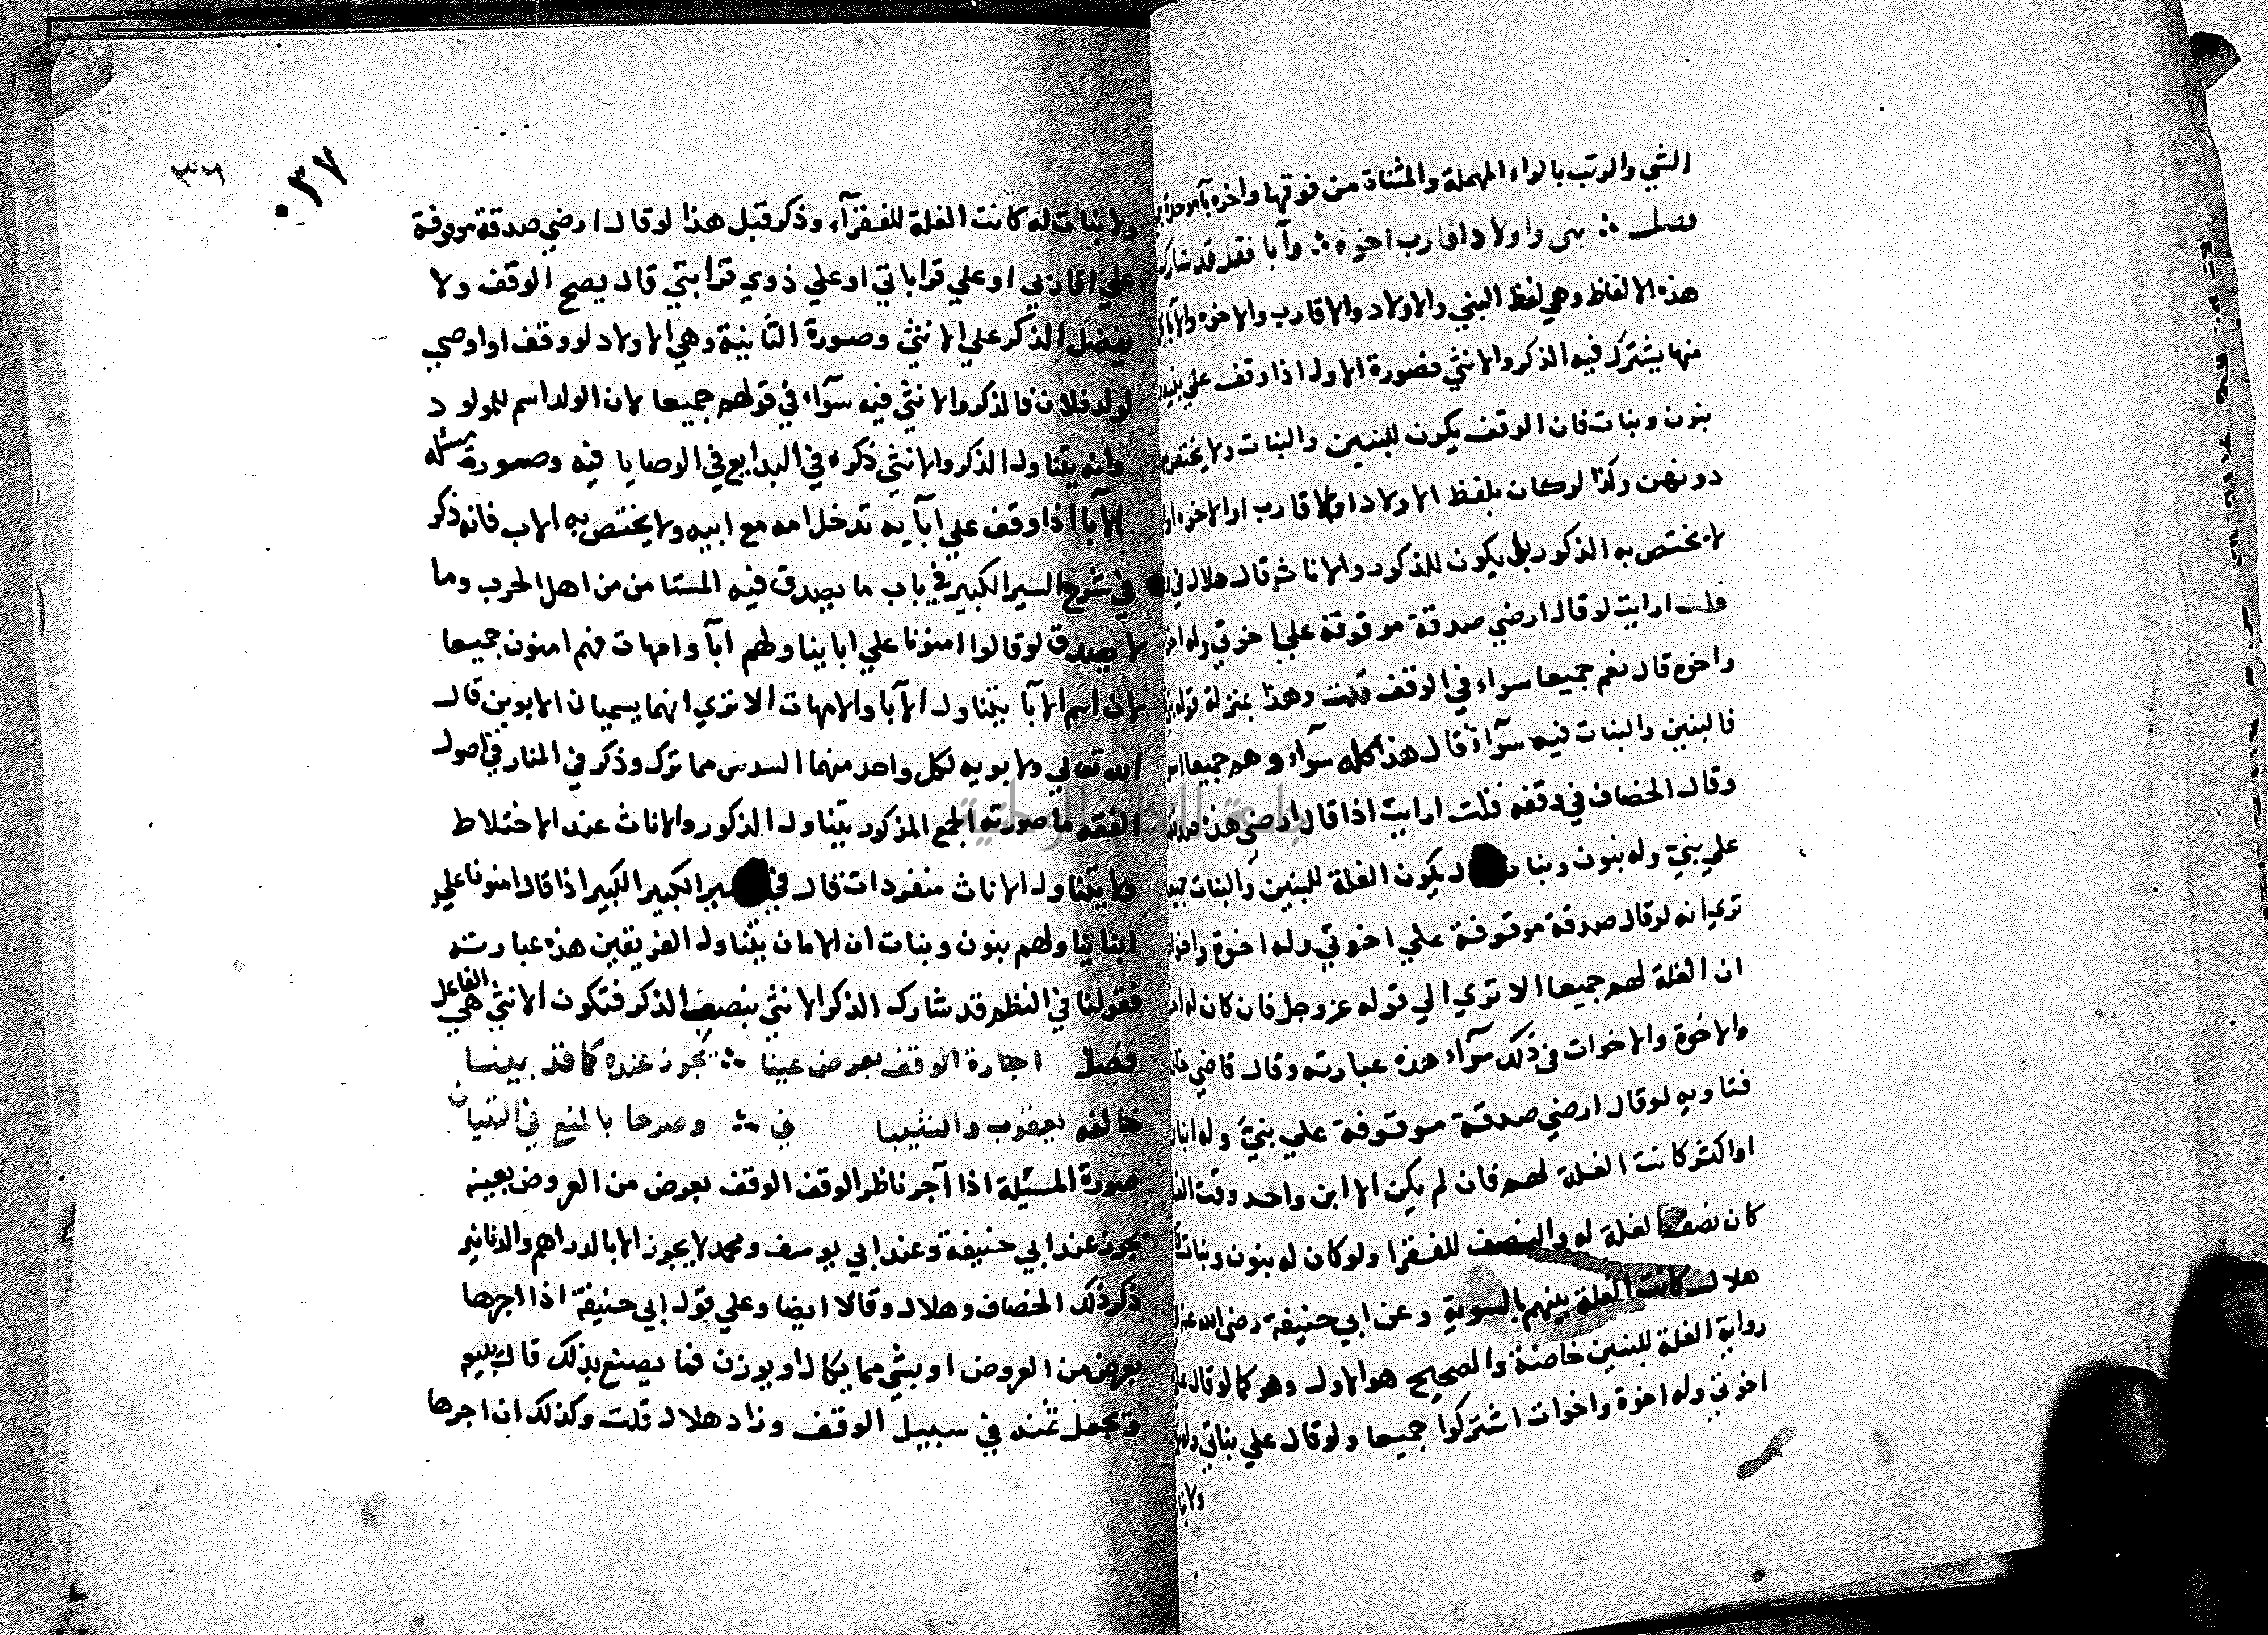 الشي والرتب بالراء المهملة والمثناة من فوقها واخره بآء موحدة
فصل ∴ بني واولاد اقارب اخوة ∴ وآبا فقل قد شارك
هذه الالفاظ وهي لفظ البني والاولاد والاقارب والاخوه والآبا
منها يشترك فيه الذكر والانثي فصورة الاول اذا وقف علي بنيه
بنون وبنات فان الوقف يكون للبنين والبنات ولا يختص
دونهن وكذا لو كان بلفظ الاولاد او الاقارب او الاخوه او
لا يختص به الذكور بل يكون للذكور والاناث قال هلال في
قلت ارايت لو قال ارضي صدقة موقوفة علي اخوتي وله
واخوه قال نعم جميعا سواء في الوقف قلت وهذا بمنزلة قوله
فالبنين والبنات فيه سوآء قال هذا كله سوآء وهم جميعا
وقال الخصاف في وقفه قلت ارايت اذا قال ارضي هذه صدقة
علي بني وله بنون وبنات قال يكون الغلة للبنين والبنات جميعا
تري انه لو قال صدقة موقوفة علي اخوتي وله اخوة واخوات
ان الغلة لهم جميعا الا تري الي قوله عز وجل فان كان له
والاخوة والاخوات في ذلك سوآء هذه عبارته وقال قاضي خان
فتاويه لو قال ارضي صدقة موقوفة علي بني وله ابنان
او اكثر كانت الغلة لهم فان لم يكن الا ابن واحد وقت
كان نصف الغلة له والنصف للفقرا ولو كان له بنون وبنات
هلال كانت الغلة بينهم بالسوية وعن ابي حنيفة رضي الله عنه
رواية الغلة للبنين خاصة والصحيح هو الاول وهو كما لو قال
اخوتي وله اخوة واخوات اشتركوا جميعا ولو قال علي بناتي وله
ولا بنات
٠٣٧
٣٦
ولا بنات له كانت الغلة للفقرآء وذكر قبل هذا لو قال ارضي صدقة موقوفة
علي اقاربي او علي قراباتي او علي ذوي قرابتي قال يصح الوقف ولا
يفضل الذكر علي الانثي وصورة الثانية وهي الاولاد لو وقف او اوصي
لولد فلان فالذكر والانثي فيه سوآء في قولهم جميعا لان الولد اسم للمولود
وانه يتناول الذكر والانثي ذكره في البدايع في الوصايا فيه وصورة مسئلة
الآبا اذا وقف علي آبآيه تدخل امه مع ابيه ولا يختص به الاب فانه ذكر
في شرح السير الكبير في باب ما يصدق فيه المستامن من اهل الحرب وما
لا يصدق لو قالوا امنونا علي ابايينا ولهم ابآ وامهات فهم امنون جميعا
لان اسم الآبا يتناول الآبا والامهات الا تري انهما يسميان الابوين قال
الله تعالي ولابويه لكل واحد منهما السدس مما ترك وذكر في المنار في اصول
الفقه ما صورته الجمع المذكور يتناول الذكور والاناث عند الاختلاط
ولا يتناول الاناث منفردات قال في السير الكبير الكبير اذا قال امنونا علي
ابناينا ولهم بنون وبنات ان الامان يتناول الفريقين هذه عبارته
فقولنا في النظم قد شارك الذكر الانثي بنصف الذكر فتكون الانثي هي الفاعل
فصل اجارة الوقف بعرض عينا ∴ يجوز عنده كما قد بينا
خالفه يعقوب والشيبا ني ∴ وصرحا بالمنع في التبيان
صورة المسئلة اذا آجر ناظر الوقف الوقف بعرض من العروض بعينه
يجوز عند ابي حنيفة وعند ابي يوسف ومحمد لا يجوز الا بالدراهم والدنانير
ذكر ذلك الخصاف وهلال وقالا ايضا وعلي قول ابي حنيفة اذا اجرها
بعرض من العروض او بشي مما يكال او يوزن فما يصنع بذلك قال يبيع
ويجعل ثمنه في سبيل الوقف وزاد هلال قلت وكذلك ان اجرها